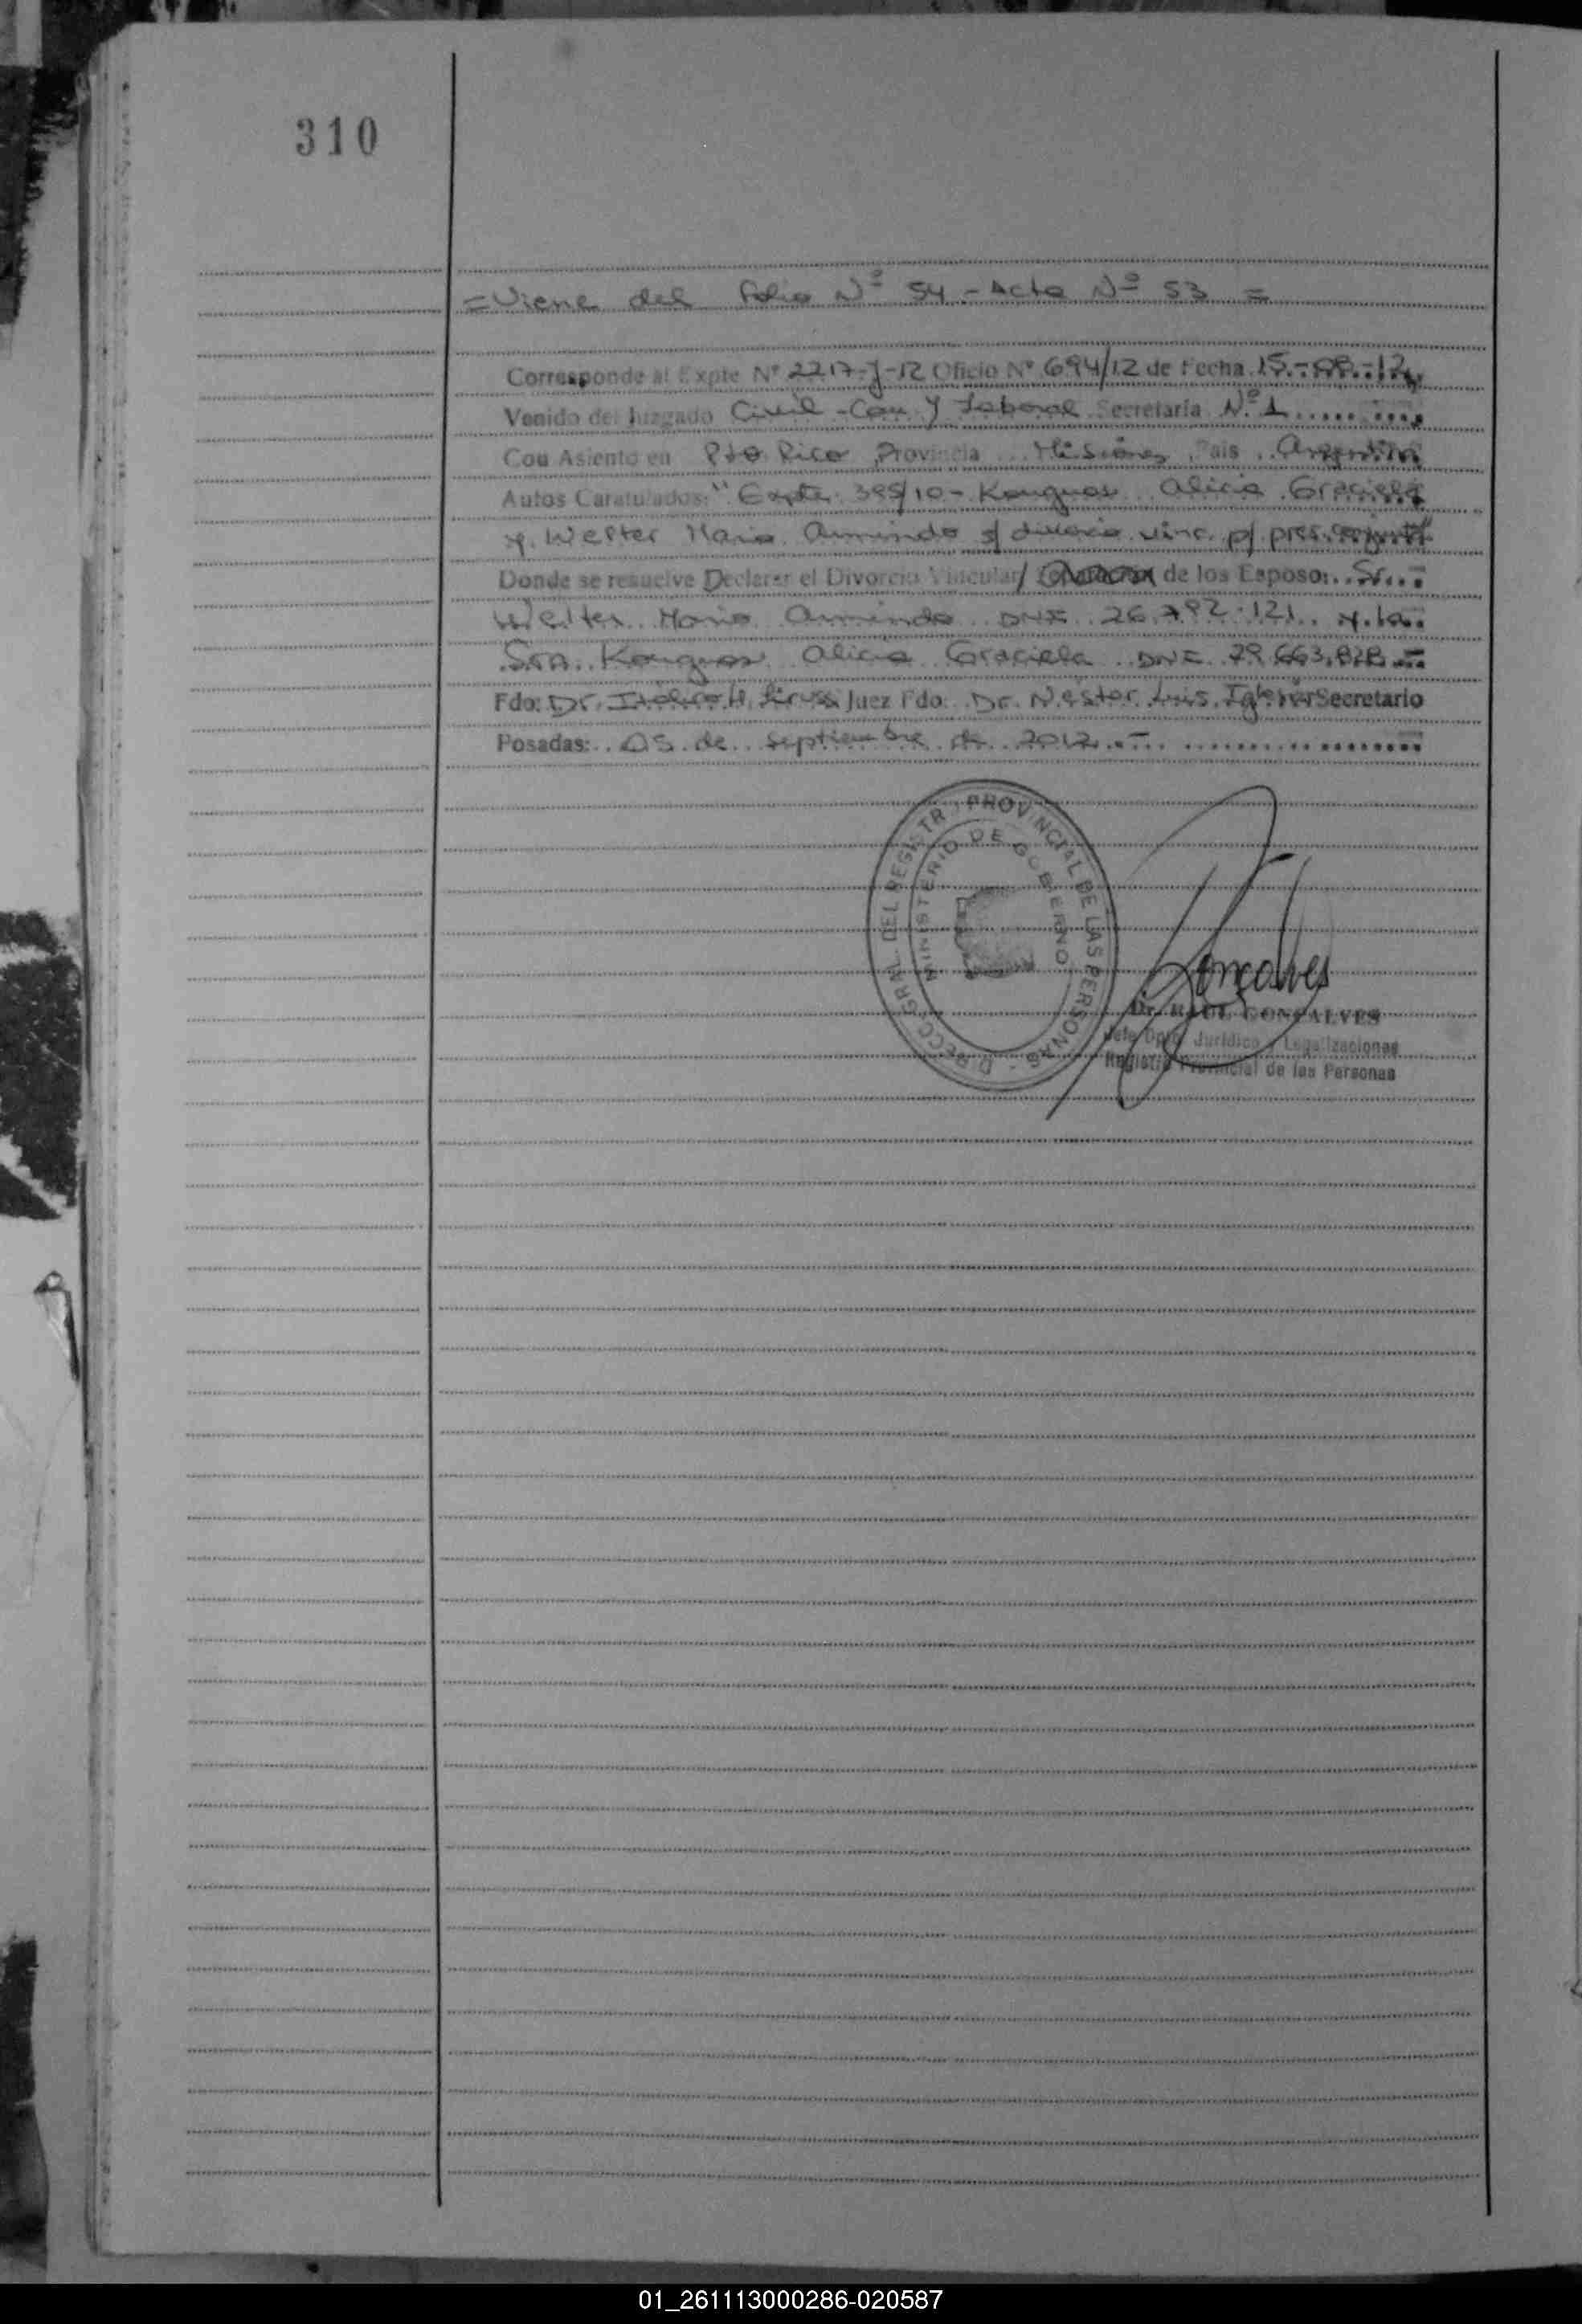 310
= Viene del folio Nº 54 - Acta Nº 53 =
Corresponde al Expte Nº 2217-J-12 Oficio Nº 694/12 de Fecha 15.-08.-12
Venido del Juzgado Civil - Com y Laboral Secretaría Nº 1
Con Asiento en Pto Rico Provincia Misiones País Argentina
Autos Caratulados: "Expte. 385/10 - Alicia Graciela
y Welter Mario Armindo s/ divorcio vinc. p/ pres. conjunta"
Donde se resuelve Declarar el Divorcio Vincular/ de los Esposo: Sr.
Welter Mario Armindo DNI 26.792.121 y la
Sra. Alicia Graciela DNI 29.663.828
Fdo: Dr. Juez Fdo: Dr. Néstor Luis Secretario
Posadas: 05 de Septiembre de 2012.-
DIRECC. GRAL DEL REGISTR. PROVINCIAL DE LAS PERSONAS -
MINISTERIO DE GOBIERNO
Gonçalves
Dr. RAUL GONÇALVES
Jefe Dpto. Jurídico y Legalizaciones
Registro Provincial de las Personas
01_261113000286-020587